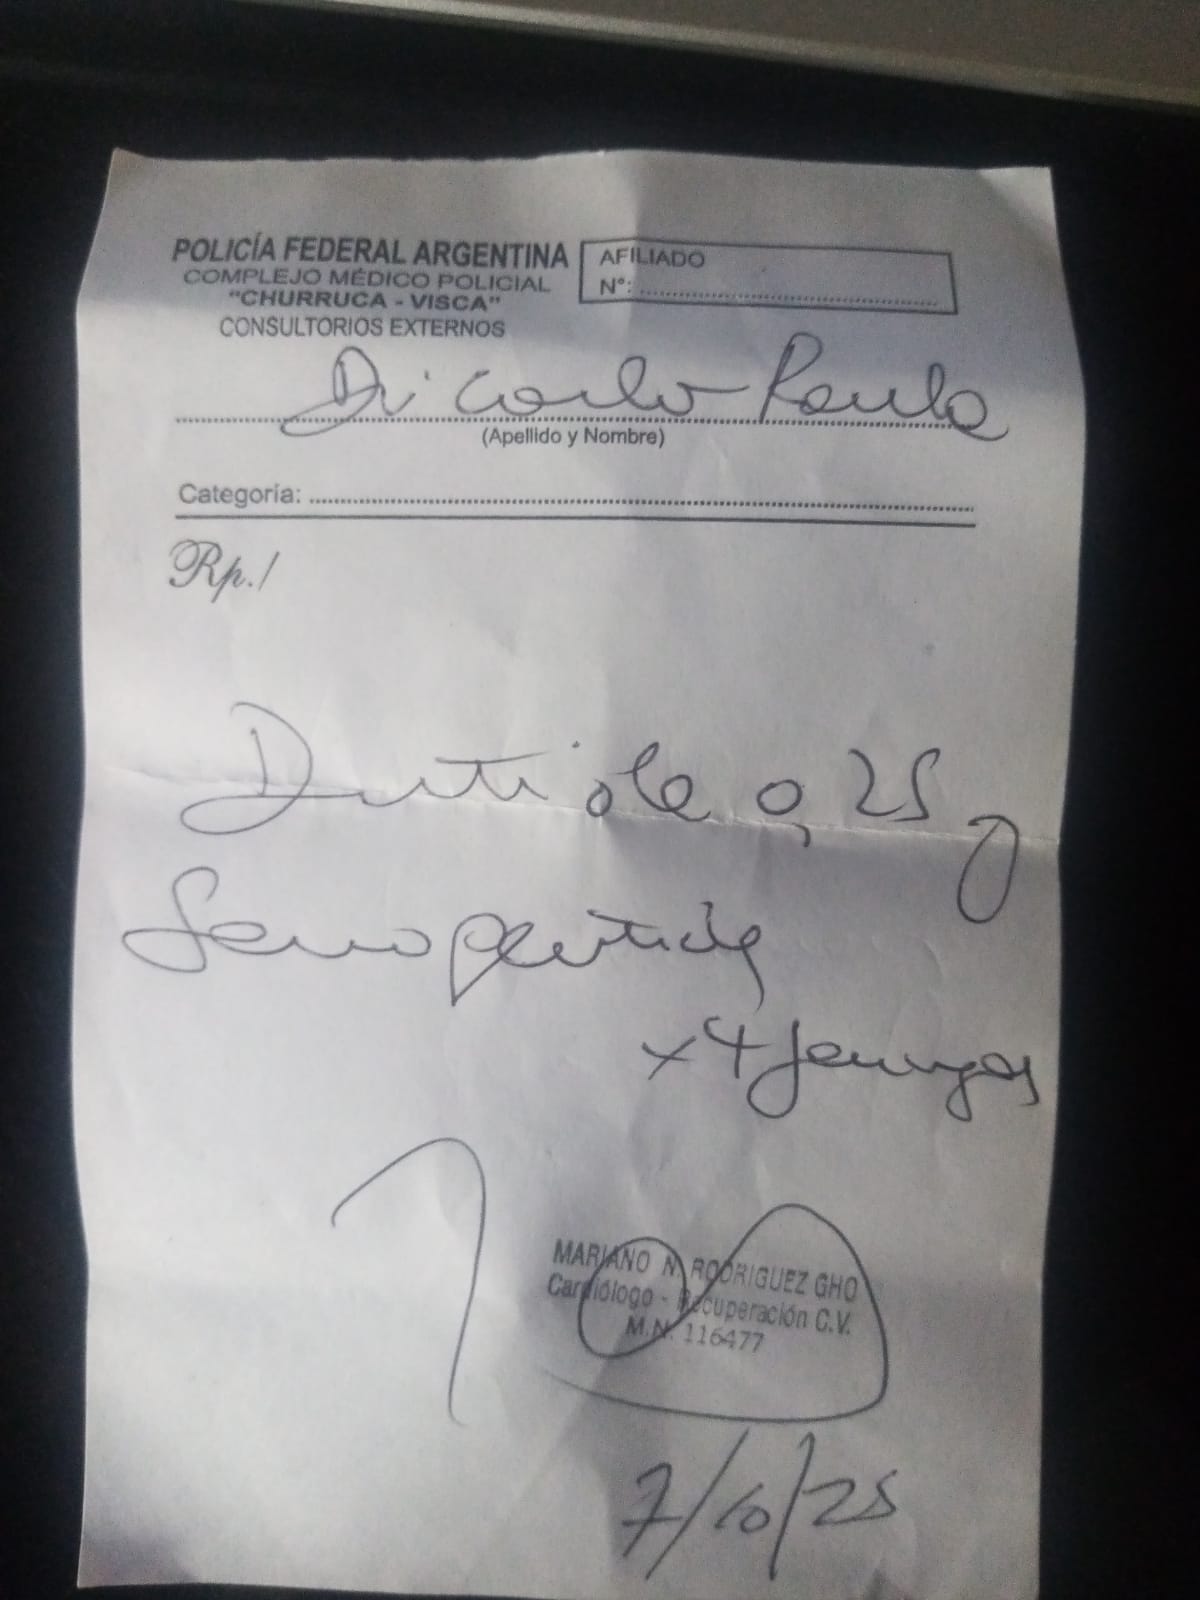 POLICÍA FEDERAL ARGENTINA
COMPLEJO MÉDICO POLICIAL
"CHURRUCA - VISCA"
CONSULTORIOS EXTERNOS
AFILIADO
N°:
Di Carlo Paula
(Apellido y Nombre)
Categoría:
Rp./
Dutide 0,25
Semaglutida
x 4 semanas
MARIANO N. RODRIGUEZ GHO
Cardiólogo - Recuperación C.V.
M.N. 116477
7/10/25